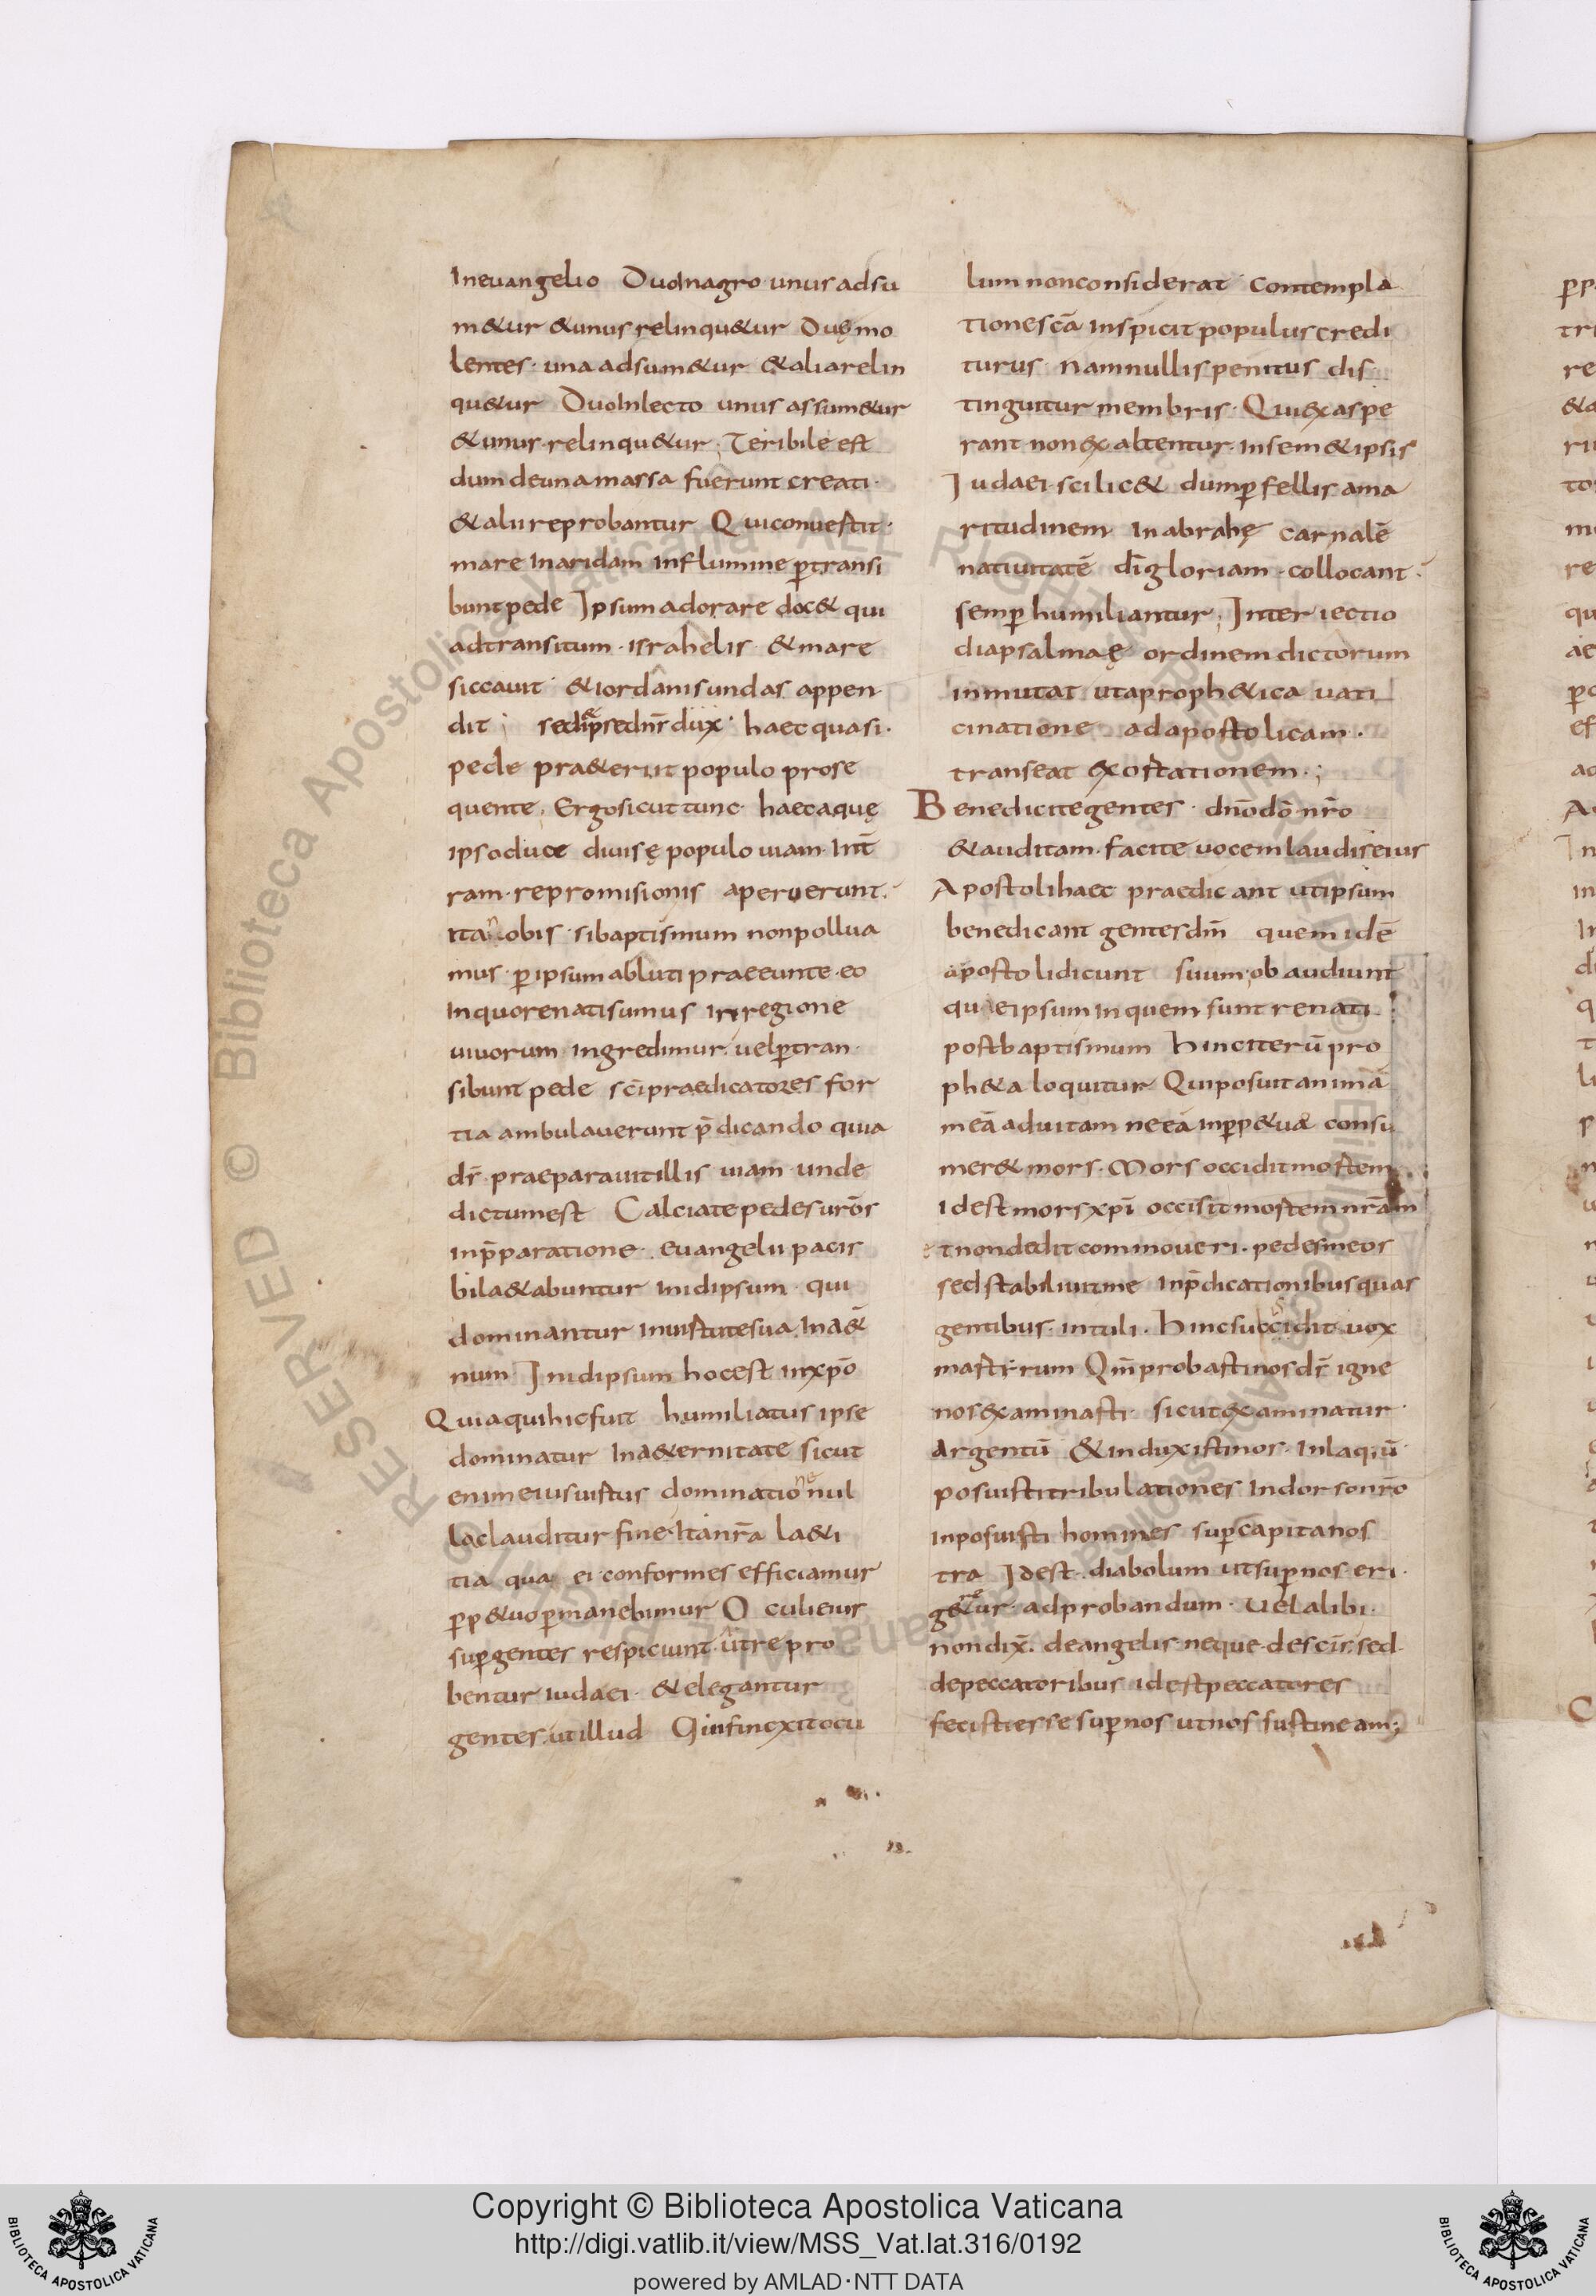 In euangelio Duo In agro unus adsu
m&ur &unus relinqu&ur Duę mo
lentes · una adsum&ur &alia relin
qu&ur Duo In lecto unus assum&ur
&unus relinqu&ur · Teribile est
dum de una massa fuerunt creati ·
&alii reprobantur Qui conuestit ·
mare In aridam In flumine p̄transi
bunt pede Ipsum adorare doc& qui
ad transitum · israhelis · &mare
siccauit &iordanis undas appen
dit ; haec quasi ·
pede pra&eriit populo prose
quente · Ergo sicut tunc haec aquę
ipso duce diuisę populo uiam · Int̄
ram · repromisionis aperuerunt ·
ita nobis · si baptismum non pollua
mus · p̄ ipsum abluti praeeunte · eo
In quo renati sumus In regione
uiuorum Ingredimur uel p̄tran
sibunt pede sc̄i praedicatores for
tia ambulauerunt p̄dicando quia
ds̄ praeparauit illis uiam unde
dictum est Calciate pedes uros̄
In p̄paratione euangelii pacis
bila&abuntur In idipsum qui
dominantur In uirtute sua In a&
num In idipsum hoc est In xp̄o
Quia qui hic fuit humiliatus ipse
dominatur In a&ernitate sicut
enim eius uirtus dominatione nul
la clauditur fine · Ita nr̄a la&i
tia qua ei conformes efficiamur
p̄p&uo p̄manebimur Oculi eius
sup̄ gentes respiciunt ut repro
bentur iudaei · &elegantur
gentes ut illud Qui finexit ocu
lum non considerat Contempla
tione sc̄a Inspicit populus credi
turus Nam nullis penitus dis
tinguitur membris · Qui exaspe
rant non exaltentur · In sem&ipsis
Iudaei · scilic& dum p̄ fellis ama
ritudinem In abrahę carnalē
natiuitatē dī gloriam · collocant ·
semp̄ humiliantur ; Inter iectio
diapsalmaę ordinem dictorum
inmutat ut a proph&ica uati
cinatione ad apostolicam ·
transeat exortationem ·;
Benedicite gentes · dn̄o dō nr̄o
&auditam · facite uocem laudis eius
Apostoli haec praedicant ut ipsum
benedicant gentes dn̄m quem idē
apostoli dicunt suum ob audiunt
quae ipsum In quem sunt renati
post baptismum Hinc iterū pro
ph&a loquitur Qui posuit animā
meā ad uitam ne eā In p̄p&uae consu
mer& mors · Mors occidit mortem
Id est mors xp̄i occisit mortem nr̄am
et non dedit commoueri · pedes meos
sed stabiliuit me In p̄dicationibus quas
gentibus · intuli · Hinc succidit uox
martirum Qm̄ probasti nos ds̄ igne
nos examinasti · sicut examinatur
Argentū &induxisti nos · In laqeū
posuisti tribulationes In dorso nr̄o
inposuisti homines sup̄ capita nos
tra Id est · diabolum ut sup̄ nos eri ·
ger&ur · ad probandum · Uel alibi ·
non dix̄ · de angelis neque de sc̄is · sed
de peccatoribus id est peccatores
fecisti esse sup̄ nos ut nos sustineam;
RESERVED © Biblioteca Apostolica Vaticana ALL RIGHTS
Copyright © Biblioteca Apostolica Vaticana
http://digi.vatlib.it/view/MSS_Vat.lat.316/0192
powered by AMLAD·NTT DATA
BIBLIOTECA APOSTOLICA VATICANA
BIBLIOTECA APOSTOLICA VATICANA